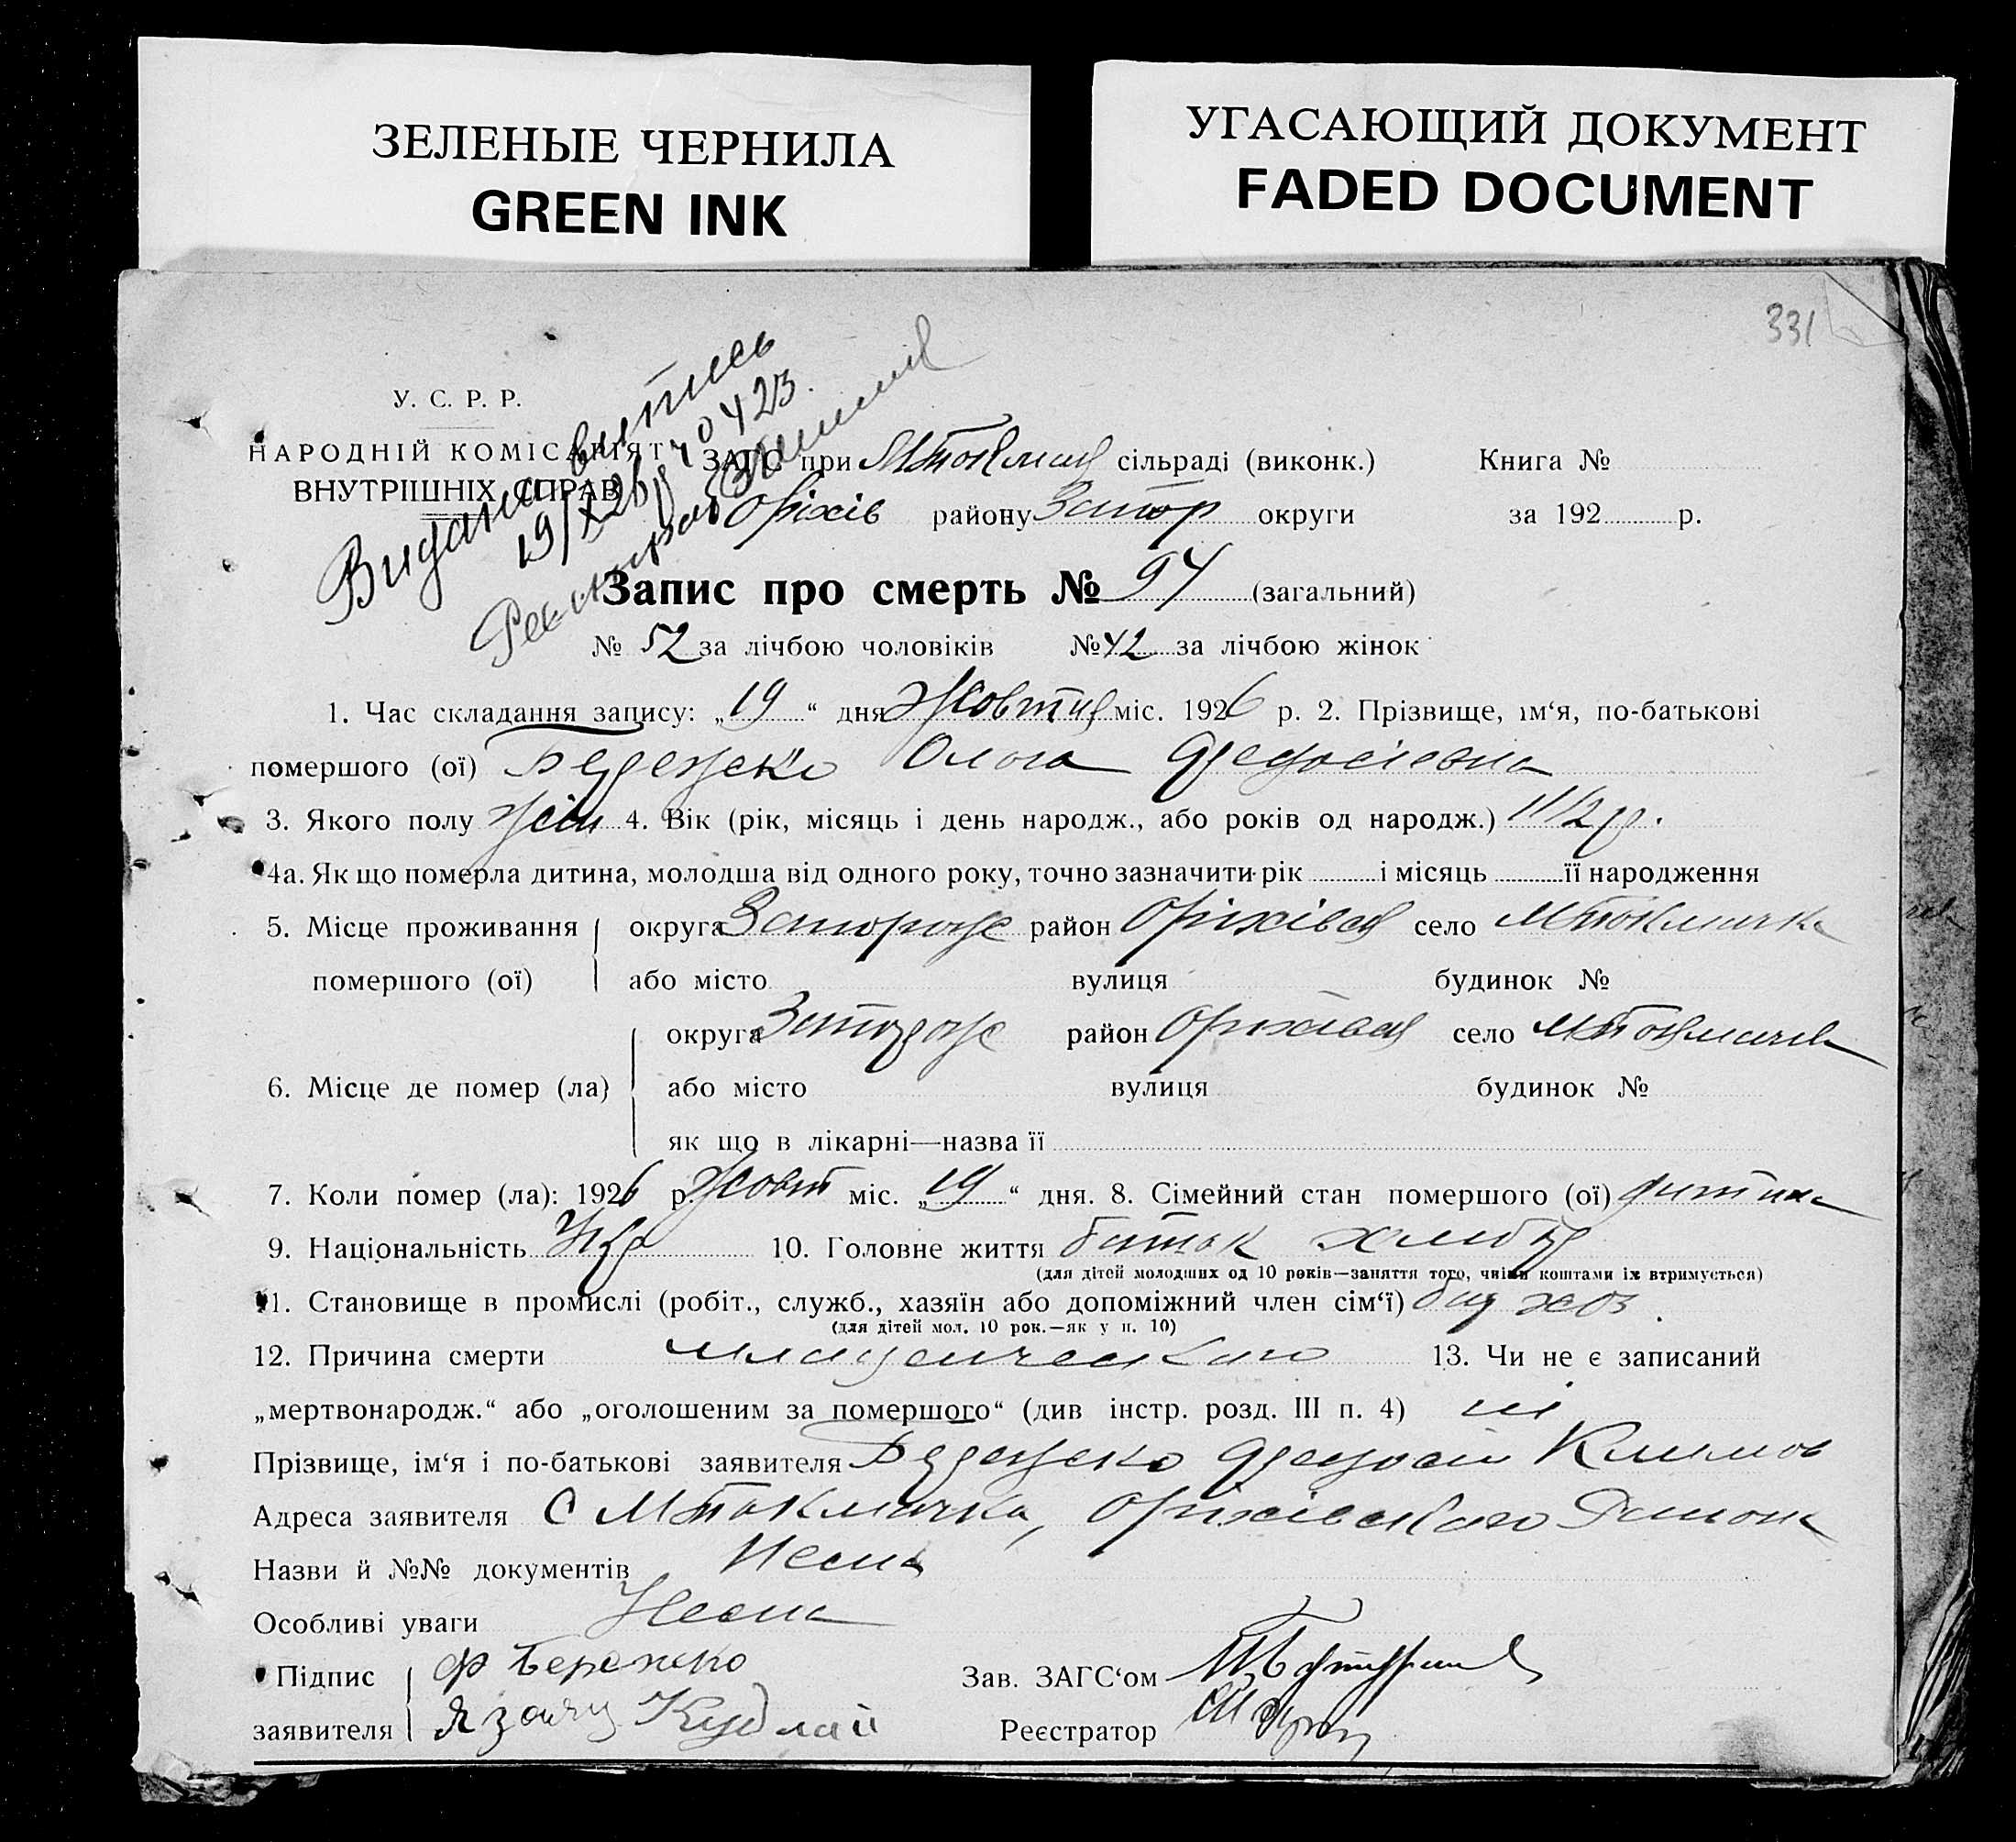 ЗЕЛЕНЫЕ ЧЕРНИЛА
GREEN INK
УГАСАЮЩИЙ ДОКУМЕНТ
FADED DOCUMENT
331
Видана випись
19/X 26 р
У. С. Р. Р.
НАРОДНІЙ КОМІСАРІЯТ
ВНУТРІШНІХ СПРАВ
ЗАГС при МТокмац сільраді (виконк.) Книга №
Оріхів району Запор округи за 192 р.
Запис про смерть № 94 (загальний)
№ 52 за лічбою чоловіків № 42 за лічбою жінок
1. Час складання запису: „19“ дня Жовтня міс. 1926 р. 2. Прізвище, ім‘я, по-батькові
помершого (ої) Бережко Ольга Федосіевна
3. Якого полу жін 4. Вік (рік, місяць і день народж., або років од народж.) 1 1/2 р.
4а. Як що померла дитина, молодша від одного року, точно зазначити рік і місяць її народження
5. Місце проживання округа Запорож район Оріхівсь село МТокмачка
помершого (ої) або місто вулиця будинок №
округа Запорож район Оріхівсь село МТокмачка
6. Місце де помер (ла) або місто вулиця будинок №
як що в лікарні—назва її
7. Коли помер (ла): 1926 р. Жовт міс. „19“ дня. 8. Сімейний стан помершого (ої) дитина
9. Національність Укр 10. Головне життя батьк хлибор
(для дітей молодших од 10 років—заняття того, чиїми коштами їх втримується)
11. Становище в промислі (робіт., служб., хазяїн або допоміжний член сім‘ї) хоз.
(для дітей мол. 10 рок.—як у п. 10)
12. Причина смерти младенческаго 13. Чи не є записаний
„мертвонародж.“ або „оголошеним за помершого“ (див інстр. розд. III п. 4) ні
Прізвище, ім‘я і по-батькові заявителя Бережко Федосій Климов
Адреса заявителя С МТокмачка, Оріхівского Району
Назви й №№ документів Нема
Особливі уваги Нема
Підпис Ф Бережко Зав. ЗАГС‘ом
заявителя Кудлай Реєстратор